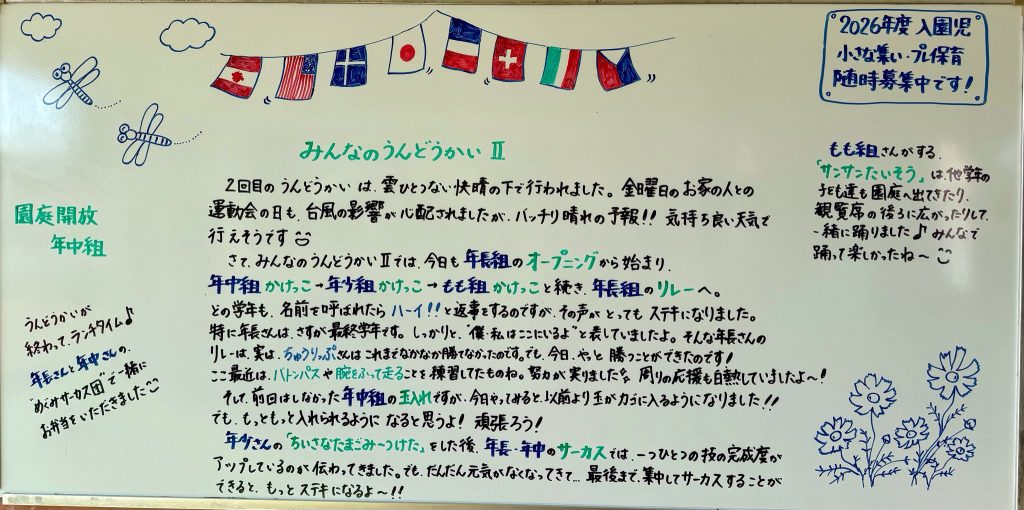 2026年度 入園児
小さな集い・プレ保育
随時募集中です!
みんなのうんどうかい Ⅱ
2回目の うんどうかい は、雲ひとつない快晴の下で行われました。金曜日のお家の人との
運動会の日も、台風の影響が心配されましたが、バッチリ晴れの予報!! 気持ち良い天気で
行えそうです
さて、みんなのうんどうかいⅡでは、今日も 年長組の オープニングから始まり、
年中組 かけっこ→年少組 かけっこ→もも組 かけっこと続き、年長組の リレーへ。
どの学年も、名前を呼ばれたら ハーイ!! と返事をするのですが、その声が とっても ステキになりました。
特に年長さんは、さすが最終学年です。しっかりと、“僕・私はここにいるよ”と表していましたよ。そんな年長さんの
リレーは、実は、ちゅうりっぷさんは これまでなかなか勝てなかったのです。でも、今日、やっと 勝つことができたのです!
ここ最近は、バトンパスや腕をふって走ることを 練習してたものね。努力が 実りました 周りの応援も白熱していましたよ〜!
そして、前回はしなかった 年中組の玉入れですが、今日やってみると、以前より玉がカゴに入るようになりました!!
でも、もっともっと入れられるように なると思うよ! 頑張ろう!
年少さんの「ちいさなたまごみ〜つけた」をした後、年長・年中のサーカスでは、一つひとつの技の完成度が
アップしているのが 伝わってきました。でも、だんだん元気がなくなってきて… 最後まで、集中してサーカスすることが
できると、もっと ステキになるよ〜!!
園庭開放
年中組
うんどうかいが
終わって、ランチタイム♪
年長さんと年中さんの、
“めぐみサーカス団”で一緒に
お弁当をいただきました
もも組さんがする、
「サンサンたいそう」は、他学年の
子ども達も園庭へ出てきたり、
観覧席の後ろに広がったりして、
一緒に踊りました♪ みんなで
踊って楽しかったね〜